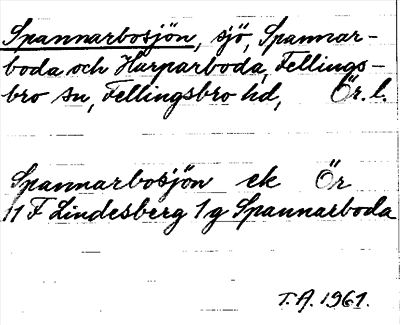 Spannarbosjön, sjö, Spannar-
boda och Harparboda, Fellings-
bro sn, Fellingsbro hd, Ör. l.
Spannarbosjön ek Ör
11 F Lindesberg 1 g Spannarboda
T.A. 1961.